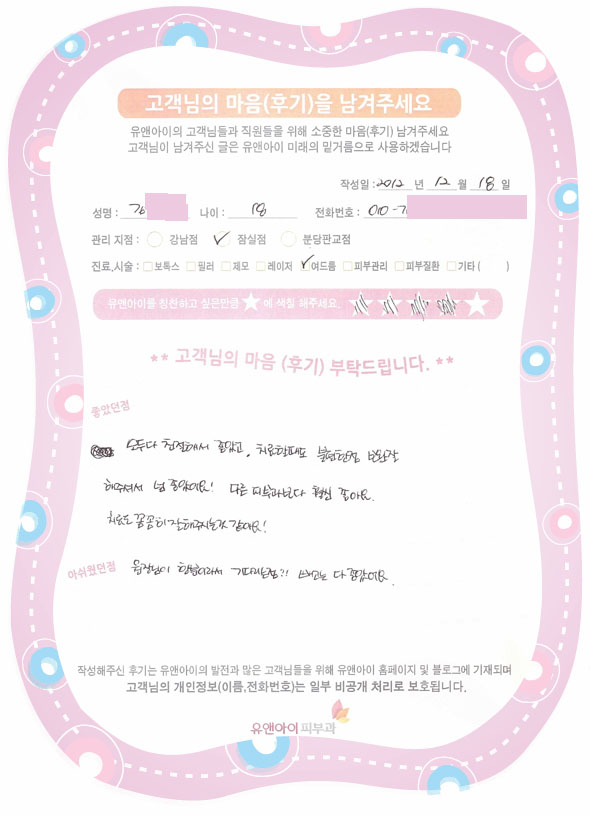 고객님의 마음(후기)을 남겨주세요
유앤아이의 고객님들과 직원들을 위해 소중한 마음(후기) 남겨주세요
고객님이 남겨주신 글은 유앤아이 미래의 밑거름으로 사용하겠습니다
작성일 : 2012 년 12 월 18 일
성명 : 나이 : 18 전화번호 : 010-7
관리 지점 : 강남점 잠실점 분당판교점
진료,시술 : 보톡스 필러 제모 레이저 여드름 피부관리 피부질환 기타 ( )
유앤아이를 칭찬하고 싶은만큼 ★에 색칠 해주세요.
** 고객님의 마음 (후기) 부탁드립니다. **
좋았던점
모두다 친절해서 좋았고, 치료할때도 불편한점
해주셔서 넘 좋았어요! 다른 피부과보다 훨씬 좋아요.
치료도 꼼꼼히 잘해주시는거 같아요!
아쉬웠던점
원장님이 한분이라서 기다리는점?! 빼고는 다 좋았어요.
작성해주신 후기는 유앤아이의 발전과 많은 고객님들을 위해 유앤아이 홈페이지 및 블로그에 기재되며
고객님의 개인정보(이름,전화번호)는 일부 비공개 처리로 보호됩니다.
유앤아이피부과